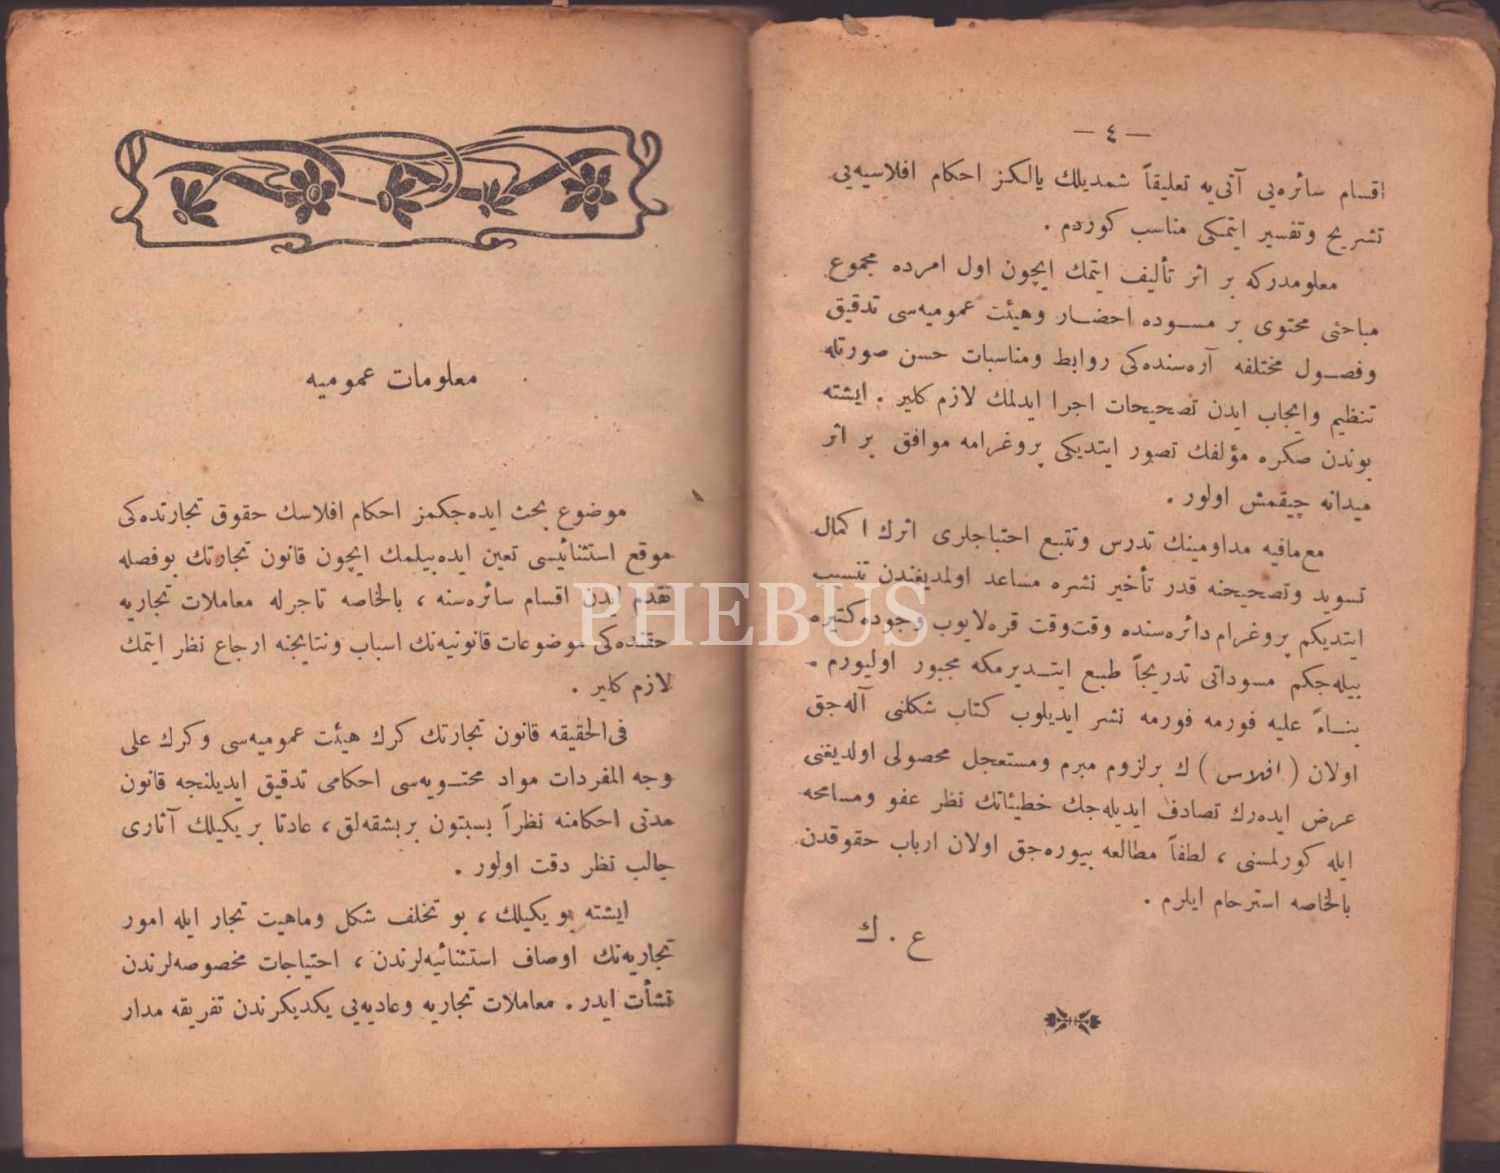 — ٤ —
اقسام سائره‌یی آتی‌یه تعلیقاً شمدیلك یالکز احکام افلاسیه‌یی
تشریح وتفسیر ایتمکی مناسب کوردم .
معلومدرکه بر اثر تألیف ایتمك ایچون اول امرده مجموع
مباحثی محتوی بر مسوده احضار وهیئت عمومیه‌سی تدقیق
وفصول مختلفه آره‌سنده‌کی روابط ومناسبات حسن صورتله
تنظیم وایجاب ایدن تصحیحات اجرا ایدلمك لازم کلیر . ایشته
بوندن صکره مؤلفك تصور ایتدیکی پروغرامه موافق بر اثر
میدانه چیقمش اولور .
مع‌مافیه مداومینك تدرس وتتبع احتیاجلری اثرك اکمال
تسوید وتصحیحنه قدر تأخیر نشره مساعد اولمدیغندن تنسیب
ایتدیکم پروغرام دائره‌سنده وقت‌وقت قره‌لایوب وجوده‌کتیره
بیله‌جکم مسوداتی تدریجاً طبع ایتدیرمکه مجبور اولیورم .
بناءً علیه فورمه فورمه نشر ایدیلوب کتاب شکلنی آله‌جق
اولان ( افلاس ) ك برلزوم مبرم ومستعجل محصولی اولدیغنی
عرض ایدەرك تصادف ایدیله‌جك خطیئاتك نظر عفو ومسامحه
ایله کورلمسنی ، لطفاً مطالعه بیوره‌جق اولان ارباب حقوقدن
بالخاصه استرحام ایلرم .
ع . ك
معلومات عمومیه
موضوع بحث ایده‌جکمز احکام افلاسك حقوق تجارتده‌کی
موقع استثنائیسی تعین ایده‌بیلمك ایچون قانون تجارتك بوفصله
تقدم ایدن اقسام سائره‌سنه ، بالخاصه تاجرله معاملات تجاریه
حقنده‌کی موضوعات قانونیه‌نك اسباب ونتایجنه ارجاع نظر ایتمك
لازم کلیر .
فی‌الحقیقه قانون تجارتك کرك هیئت عمومیه‌سی وکرك علی
وجه المفردات مواد محتویه‌سی احکامی تدقیق ایدیلنجه قانون
مدنی احکامنه نظراً بسبتون بربشقه‌لق ، عادتا بریکیلك آثاری
جالب نظر دقت اولور .
ایشته بو یکیلك ، بو تخلف شکل وماهیت تجار ایله امور
تجاریه‌نك اوصاف استثنائیه‌لرندن ، احتیاجات مخصوصه‌لرندن
نشأت ایدر . معاملات تجاریه وعادیه‌یی یکدیکرندن تفریقه مدار
PHEBUS